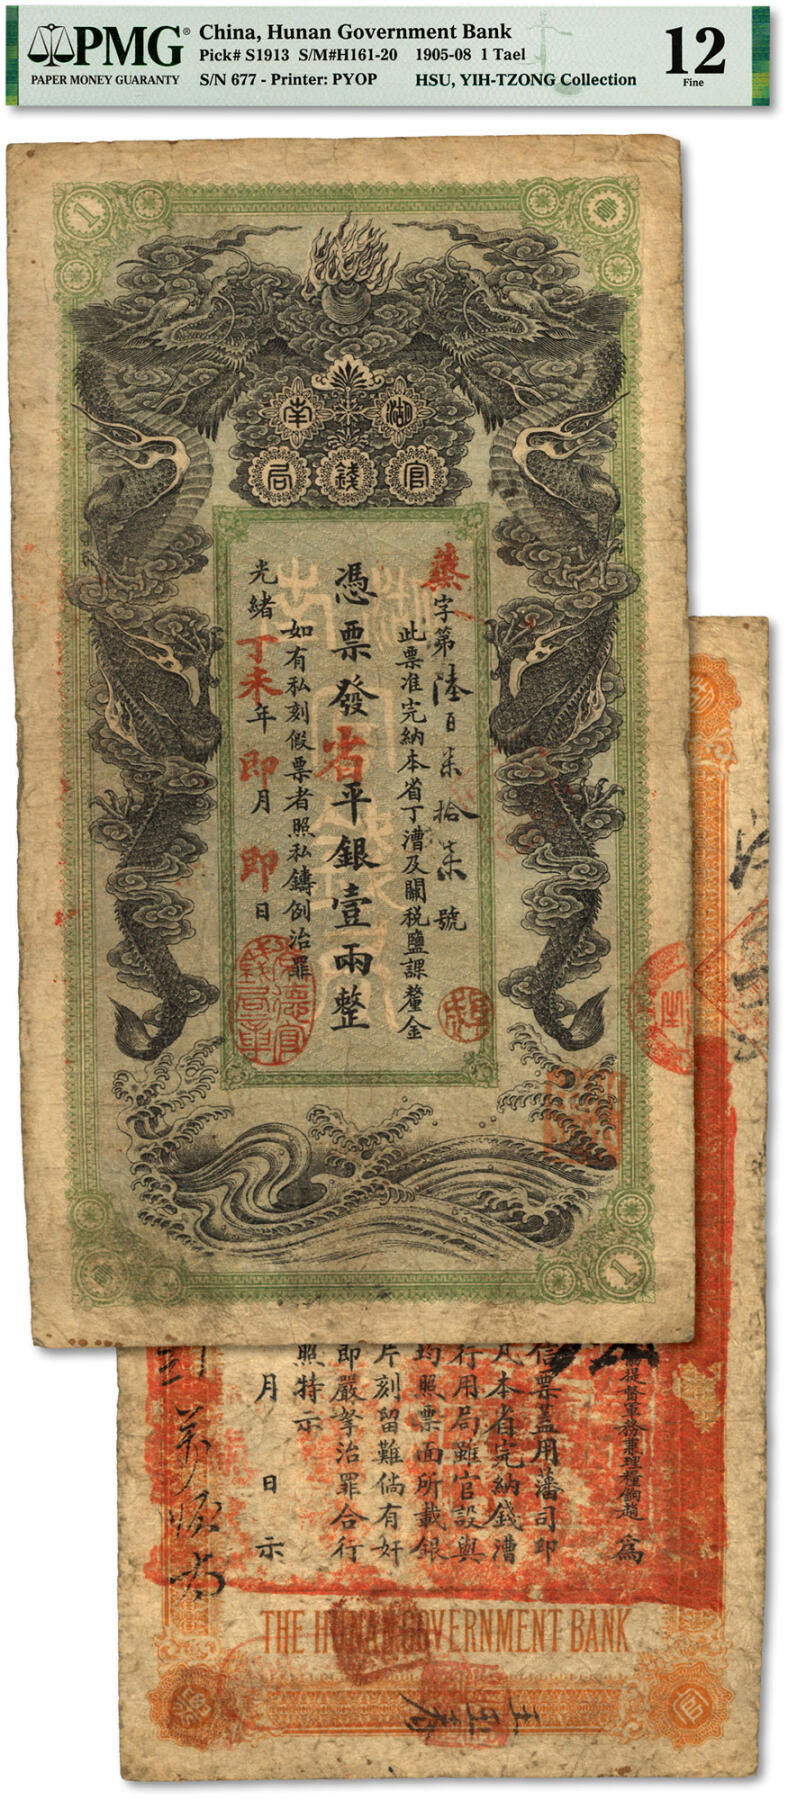 PMG
PAPER MONEY GUARANTY
China, Hunan Government Bank
Pick# S1913 S/M#H161-20 1905-08 1 Tael
S/N 677 - Printer: PYOP
HSU, YIH-TZONG Collection
12
Fine
1
湖南
官錢局
字第陸百柒拾柒號
此票准完納本省丁漕及關稅鹽課釐金
憑票發省平銀壹兩整
如有私刻假票者照私鑄例治罪
光緒丁未年即月即日
常德官錢局章
1
提督軍務兼理糧餉趙 為
信票蓋用藩司印
凡本省完納錢漕
行用局雖官設與
均照票面所載銀
片刻留難倘有奸
即嚴拏治罪合行
照特示
月 日 示
THE HUNAN GOVERNMENT BANK
官